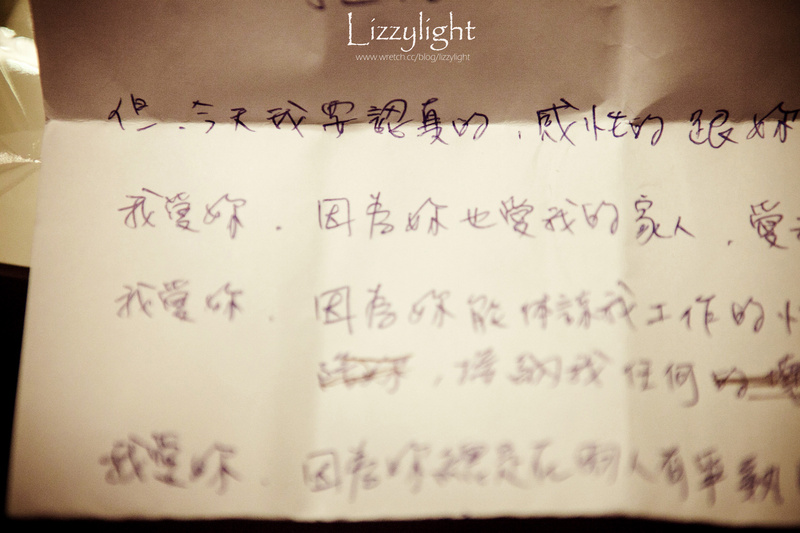 Lizzylight
www.wretch.cc/blog/lizzylight
但、今天我要認真的，感性的 跟妳
我愛妳．因為妳也愛我的家人，愛
我愛妳．因為妳能体諒我工作的忙
，停 我任何
我愛妳．因為妳總是在兩人有爭執